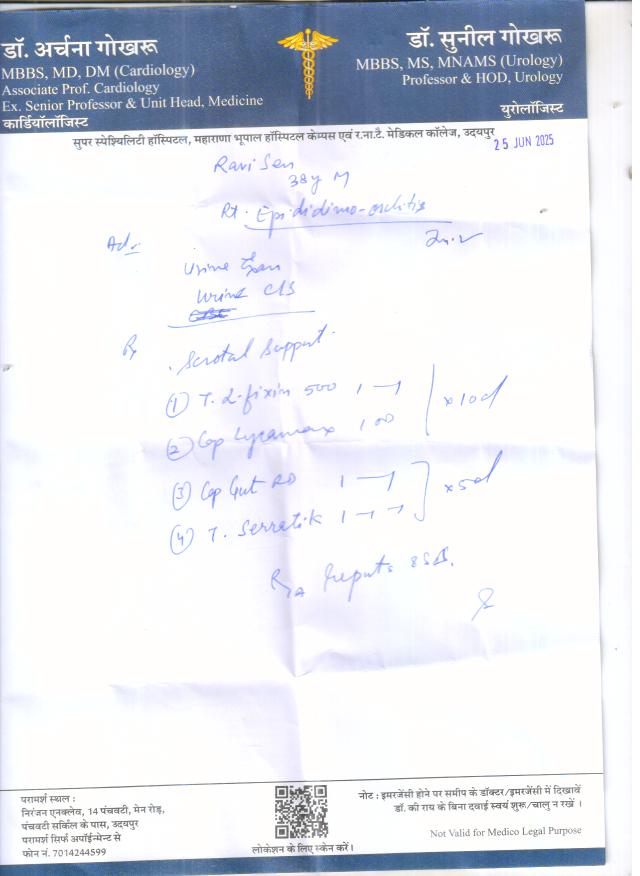 डॉ. अर्चना गोखरू
MBBS, MD, DM (Cardiology)
Associate Prof. Cardiology
Ex. Senior Professor & Unit Head, Medicine
कार्डियॉलॉजिस्ट
डॉ. सुनील गोखरू
MBBS, MS, MNAMS (Urology)
Professor & HOD, Urology
युरोलॉजिस्ट
सुपर स्पेश्यिलिटी हॉस्पिटल, महाराणा भूपाल हॉस्पिटल केम्पस एवं र.ना.टै. मेडिकल कॉलेज, उदयपुर
25 JUN 2025
Ravi Sen
38y M
Rt. Epididimo-orchitis
Adv
Urine
Urine C/S
Rx
Scrotal Support
(1) T. 500 1-1
x 10d
(2) Cap
(3) Cap Gut 1-1
x 5d
(4) T. Serratik 1-1-1
परामर्श स्थल :
निरंजन एनक्लेव, 14 पंचवटी, मेन रोड़,
पंचवटी सर्किल के पास, उदयपुर
परामर्श सिर्फ अपॉईन्मेन्ट से
फोन नं. 7014244599
लोकेशन के लिए स्केन करें।
नोट : इमरजेंसी होने पर समीप के डॉक्टर/इमरजेंसी में दिखावें
डॉ. की राय के बिना दवाई स्वयं शुरू/चालु न रखें ।
Not Valid for Medico Legal Purpose